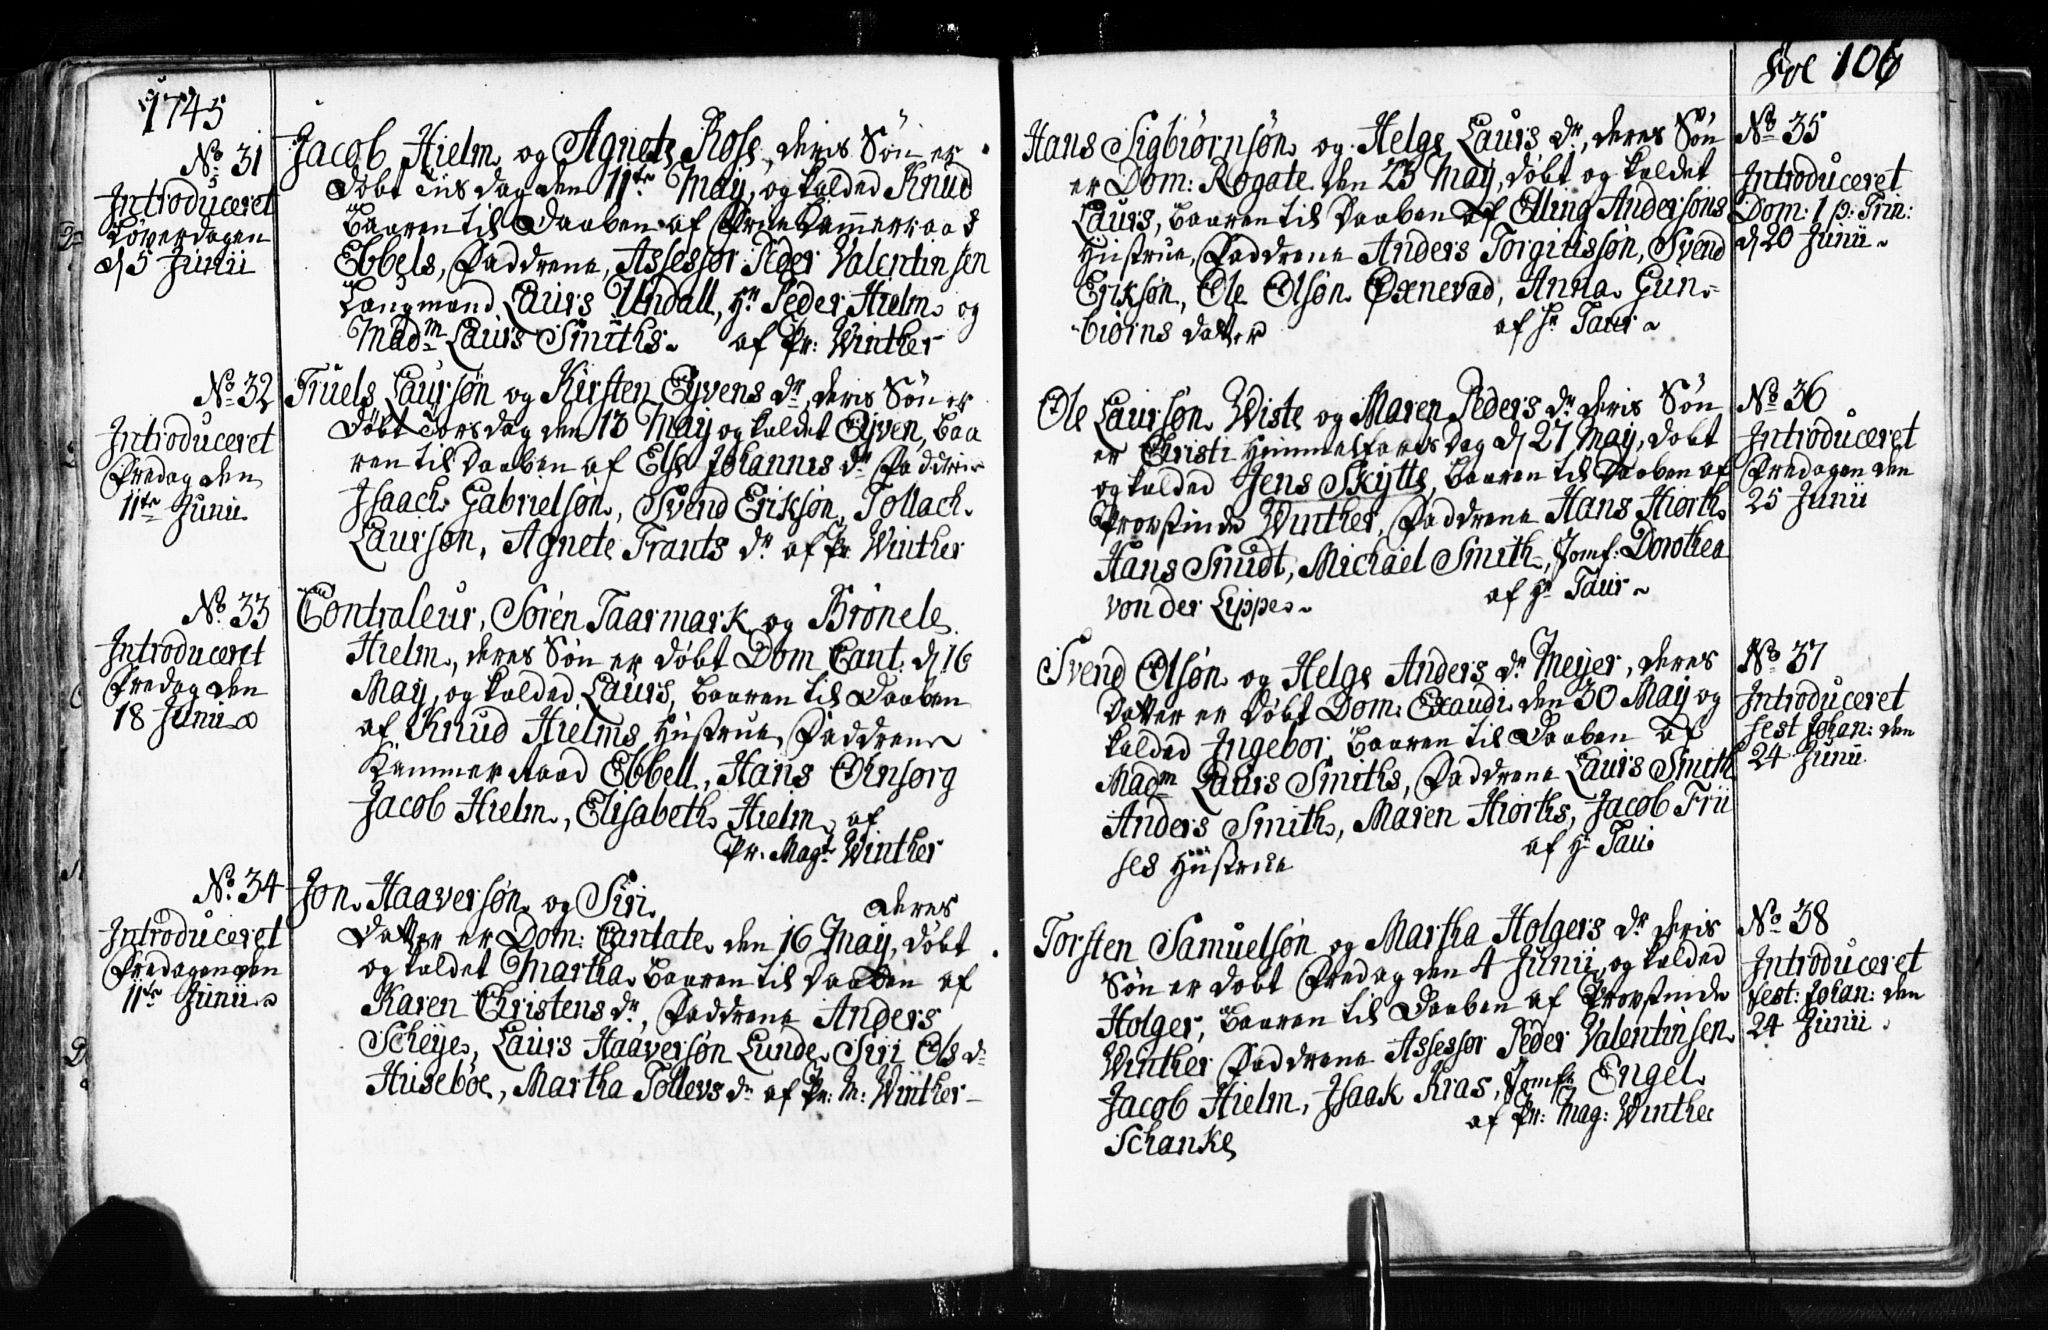 1745
No. 31
Introduceret
Löverdagen
d 5 Junii
Jacob Hielm og Agnete Rose, deris Søn er
døbt Tiisdag den 11te May, og kalded Knud
baaren til Daaben af Frue Kammerraad
Ebbels, Faddrene, Assessor Peder Valentinsen
Laugmand Laurs Undall, Hr Peder Hielm og
Madm Laurs Smiths. af Pr: Winther
No. 32
Introduceret
Fredag den
11te Junii
Truels Laursøn og Kirsten Eyvens dr, deris Søn er
døbt Torsdag den 13 May og kaldet Eyven, baa
ren til Daaben af Else Johannis dr Faddrene
Isaach Gabrielsøn, Svend Eriksøn, Tollach
Laursøn, Agnete Frants dr af Pr Winther
No. 33
Introduceret
Fredag den
18 Junii
Controleur, Søren Taarmark og Brønele
Hielm, deres Søn er døbt Dom Cant: d 16
May, og kalded Laurs, baaren til Daaben
af Knud Hielms Hustrue, Faddrene
Kammerraad Ebbell, Hans Ohnsorg
Jacob Hielm, Elisabeth Hielm, af
Pr. Magr Winther
No. 34
Introduceret
Fredagen den
11te Junii
Jon Haaversøn og Siri deres
Datter er Dom: Cantate den 16 May, døbt
og kaldet Martha baaren til Daaben af
Karen Christens dr, Faddrene Anders
Scheye, Laurs Haaversøn Lunde Siri Ols dr
Husebøe, Martha Tollevs dr af Pr: M: Winther
Fol 106
Hans Sigbiørnsøn og Helge Laurs dr, deres Søn
er Dom: Rogate den 23 May, døbt og kaldet
Laurs, baaren til Daaben af Elling Andersøns
Hustrue, Faddrene Anders Torgiussøn, Svend
Eriksøn, Ole Olsøn Oxnevad, Anna Gun-
biørns datter af Hr Taur
No 35
Introduceret
Dom: 1 p: Trin:
d 20 Junii
Ole Laursøn Wiste og Maren Peders dr deris Søn
er Christi Himmelfarts Dag d 27 May, døbt
og kalded Jens Skytte, baaren til Daaben af
Provstinde Winther, Faddrene Hans Hiorth
Hans Smidt, Michael Smith, Jomf: Dorothea
von der Lippe af Hr Taur
No 36
Introduceret
Fredagen den
25 Junii
Svend Olsøn og Helge Anders dr Meyer, deres
Datter er døbt Dom: Exaudi den 30 May og
kalded Ingebor, baaren til Daaben af
Madm Laurs Smiths, Faddrene Laurs Smith
Anders Smith, Maren Hiorths, Jacob Frii
ses Hustrue af Hr Taur
No 37
Introduceret
fest Johan: den
24 Junii
Torsten Samuelsøn og Martha Holgers dr deris
Søn er døbt Fredag den 4 Junii og kalded
Holger, baaren til Daaben af Provstinde
Winther Faddrene Assessor Peder Valentinsen
Jacob Hielm, Isaak Kras, Jomfr Engel
Schanke af Pr: Mag: Winther
No 38
Introduceret
fest: Johan: den
24 Junii